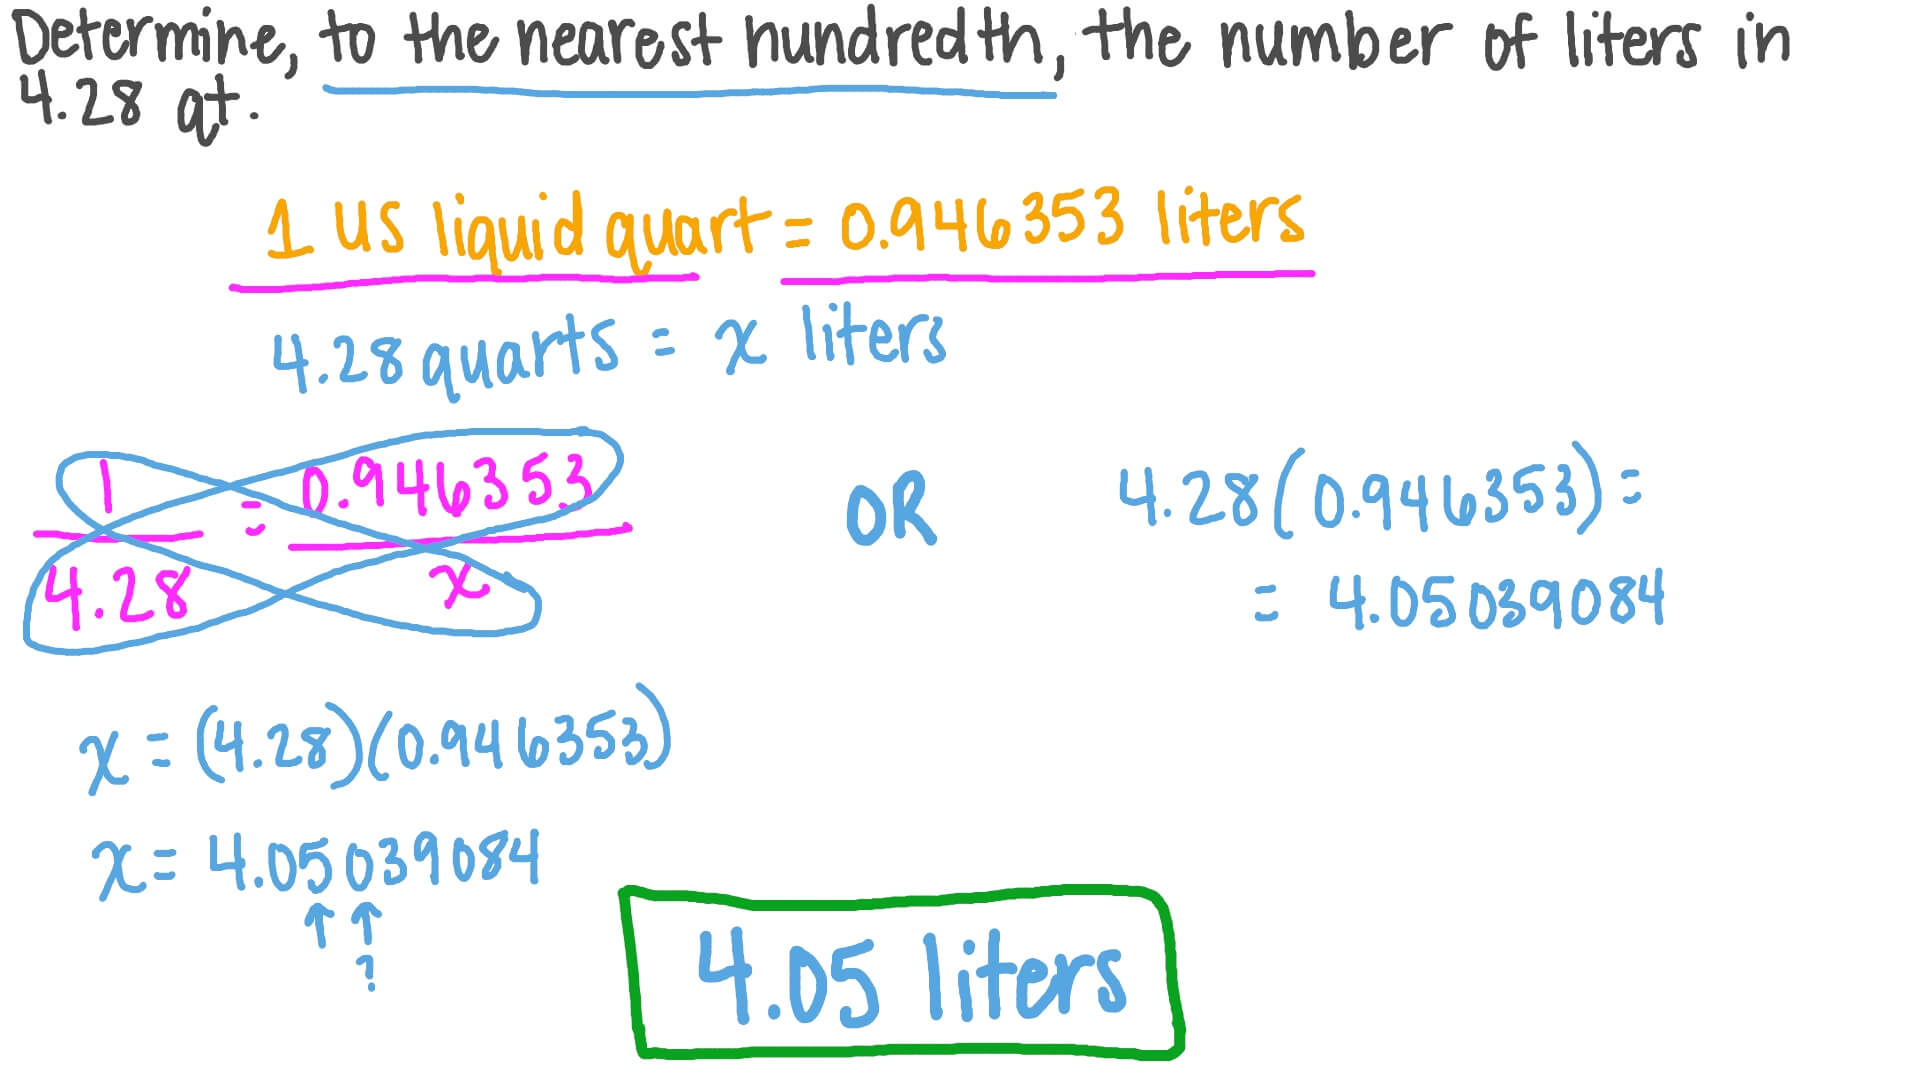 Determine, to the nearest hundredth, the number of liters in
4.28 qt.
1 US liquid quart = 0.946353 liters
4.28 quarts = x liters
1 = 0.946353
4.28 x
OR
4.28(0.946353) =
= 4.05039084
x = (4.28)(0.946353)
x = 4.05039084
↑ ↑
?
4.05 liters